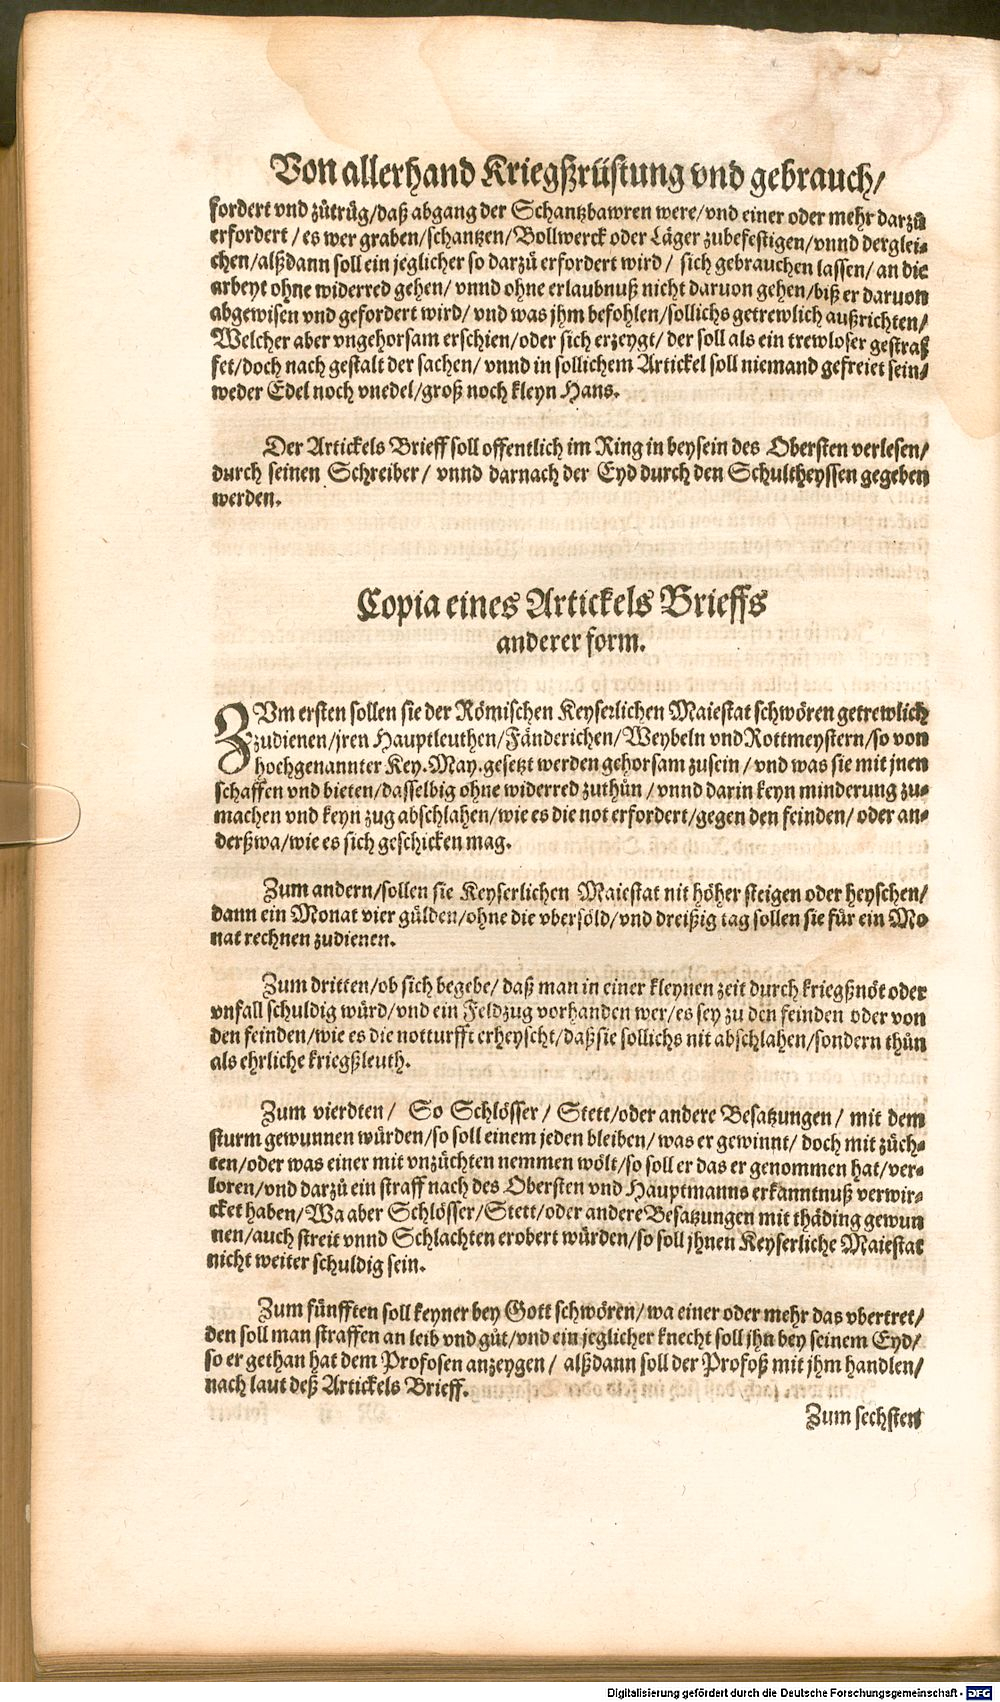 Von allerhand Kriegßrüstung vnd gebrauch/
fordert vnd zůtrüg/daß abgang der Schantzbawren were/vnd einer oder mehr darzů
erfordert/es wer graben/schantzen/Bollwerck oder Läger zubefestigen/vnnd derglei-
chen/alßdann soll ein jeglicher so darzů erfordert wird/ sich gebrauchen lassen/an die
arbeyt ohne widerred gehen/ vnnd ohne erlaubnuß nicht daruon gehen/biß er daruon
abgewisen vnd gefordert wird/ vnd was jhm befohlen/sollichs getrewlich außrichten/
Welcher aber vngehorsam erschien/oder sich erzeygt/ der soll als ein trewloser gestraf
fet/doch nach gestalt der sachen/ vnnd in sollichem Artickel soll niemand gefreiet sein/
weder Edel noch vnedel/groß noch kleyn Hans.
Der Artickels Brieff soll offentlich im Ring in beysein des Obersten verlesen/
durch seinen Schreiber/ vnnd darnach der Eyd durch den Schultheyssen gegeben
werden.
Copia eines Artickels Brieffs
anderer form.
ZVm ersten sollen sie der Römischen Keyserlichen Maiestat schwören getrewlich
zudienen/jren Hauptleuthen/Fänderichen/Weybeln vnd Rottmeystern/so von
hochgenannter Key. May. gesetzt werden gehorsam zusein/ vnd was sie mit jnen
schaffen vnd bieten/dasselbig ohne widerred zuthůn/vnnd darin keyn minderung zu-
machen vnd keyn zug abschlahen/wie es die not erfordert/gegen den feinden/ oder an-
derßwa/wie es sich geschicken mag.
Zum andern/sollen sie Keyserlichen Maiestat nit höher steigen oder heyschen/
dann ein Monat vier gülden/ohne die vbersöld/vnd dreißig tag sollen sie für ein Mo
nat rechnen zudienen.
Zum dritten/ob sich begebe/ daß man in einer kleynen zeit durch kriegßnöt oder
vnfall schuldig würd/vnd ein Feldzug vorhanden wer/es sey zu den feinden oder von
den feinden/wie es die notturfft erheyscht/daß sie sollichs nit abschlahen/sondern thůn
als ehrliche kriegßleuth.
Zum vierdten/ So Schlösser/ Stett/oder andere Besatzungen/ mit dem
sturm gewunnen würden/so soll einem jeden bleiben/was er gewinnt/ doch mit züch-
ten/oder was einer mit vnzüchten nemmen wölt/so soll er das er genommen hat/ver-
loren/vnd darzů ein straff nach des Obersten vnd Hauptmanns erkanntnuß verwir-
cket haben/Wa aber Schlösser/Stett/oder andere Besatzungen mit thäding gewun
nen/auch streit vnnd Schlachten erobert würden/so soll jhnen Keyserliche Maiestat
nicht weiter schuldig sein.
Zum fünfften soll keyner bey Gott schwören/wa einer oder mehr das vbertret/
den soll man straffen an leib vnd gůt/vnd ein jeglicher knecht soll jhn bey seinem Eyd/
so er gethan hat dem Profosen anzeygen/ alßdann soll der Profoß mit jhm handlen/
nach laut deß Artickels Brieff.
Zum sechsten
Digitalisierung gefördert durch die Deutsche Forschungsgemeinschaft - DFG